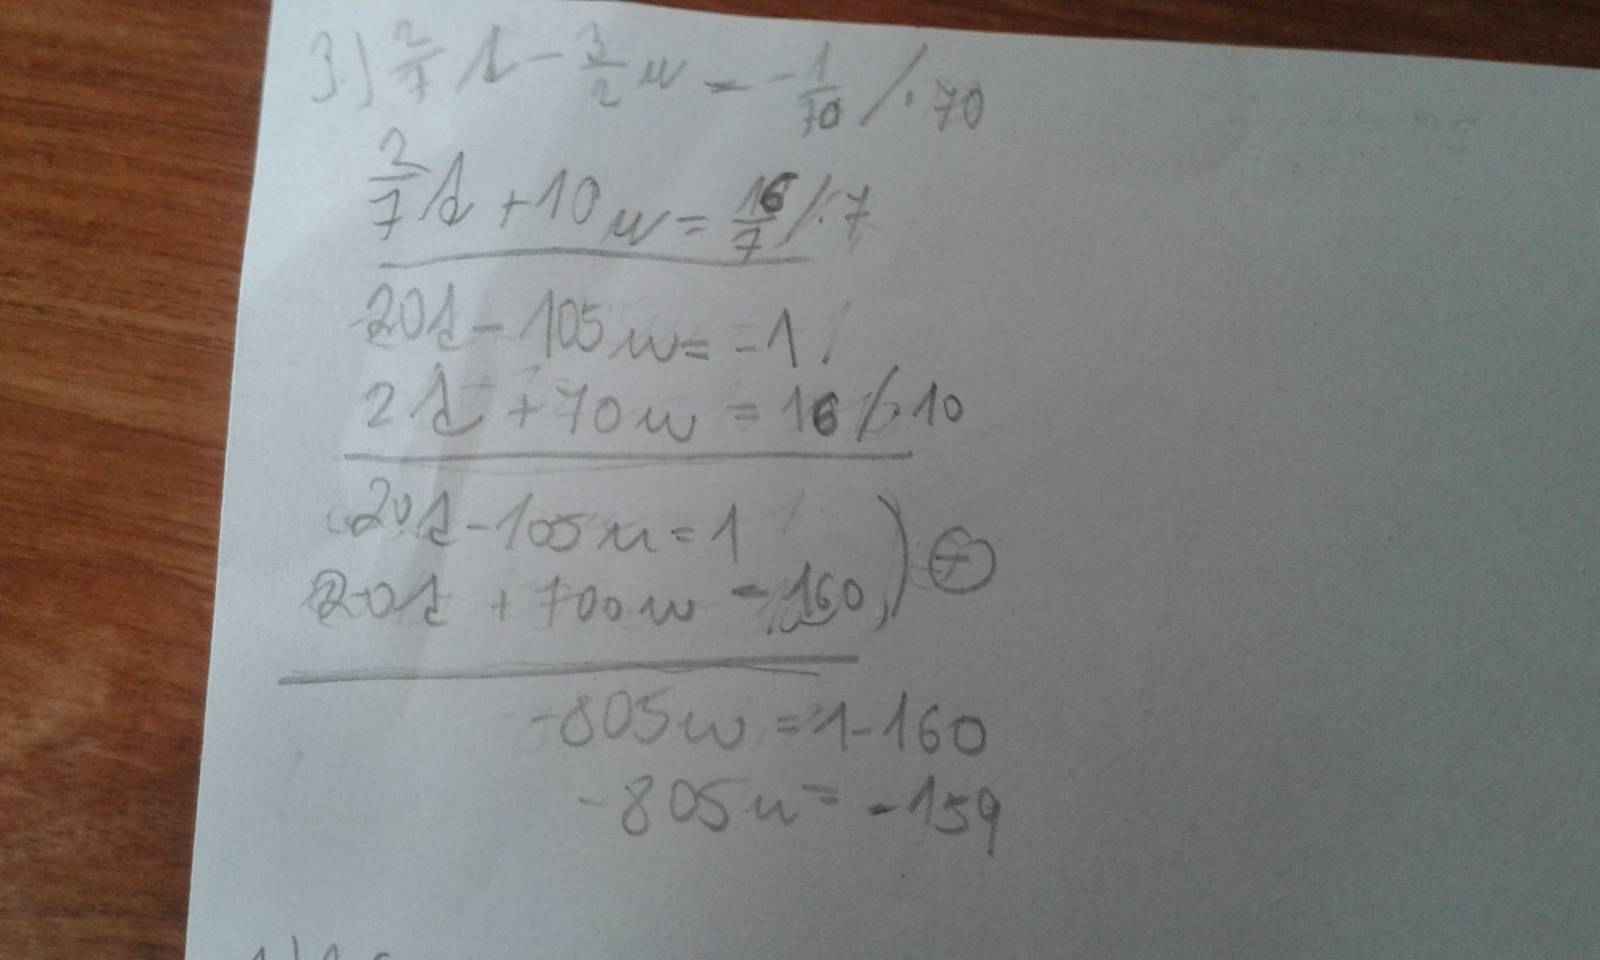 3.) 2/7 s - 3/2 u = -1/70 /·70
2/7 s + 10u = 16/7 /·7
20s - 105u = -1 /
2s + 70u = 16 /·10
20s - 105u = 1
20s + 700u = 160
-805u = 1-160
-805u = -159